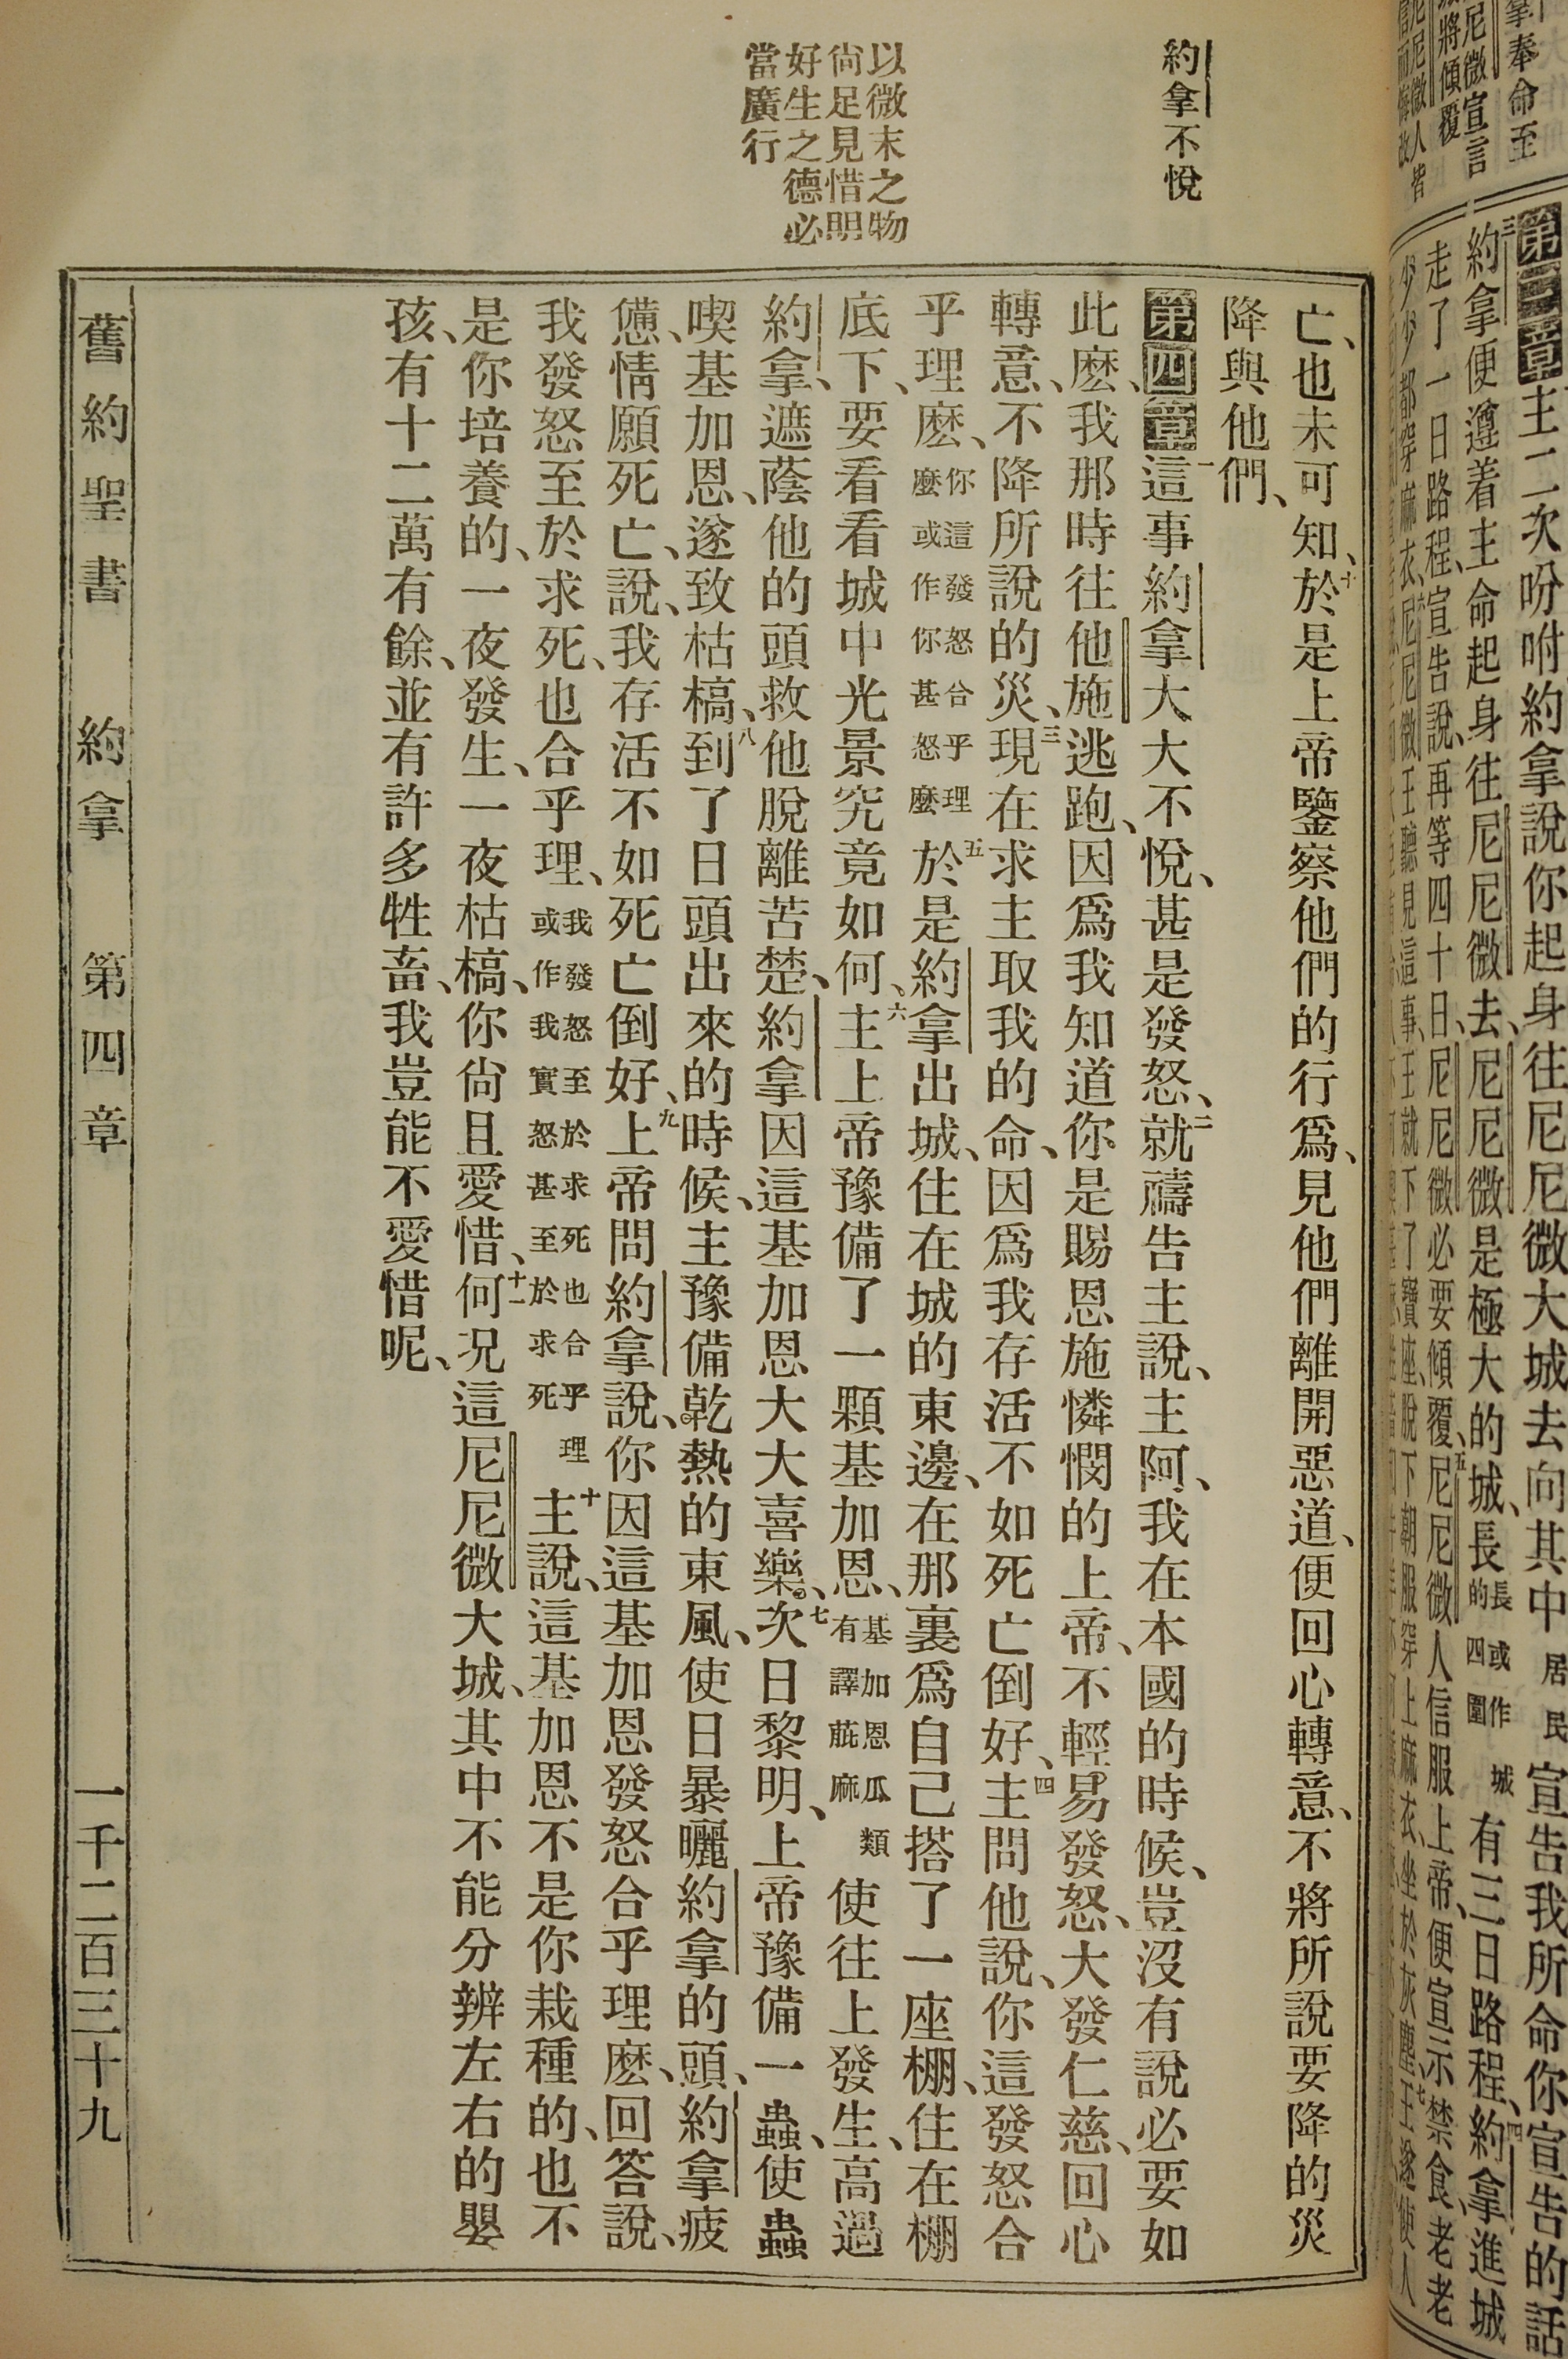 奉命至
尼微宣言
將傾覆
尼尼微人皆
第三章主二次吩咐約拿說你起身往尼尼微大城去向其中居民宣告我所命你宣告的話
三約拿便遵着主命起身往尼尼微去、尼尼微是極大的城、長長或作城的四圍有三日路程、四約拿進城
走了一日路程、宣告說、再等四十日、尼尼微必要傾覆、五尼尼微人信服上帝、便宣示禁食、老老
少少都穿麻衣、尼尼微王聽見這事、王就下了寶座、脫下朝服穿上麻衣、坐於灰塵、王遂使人
約拿不悅
以微末之物
尙足見惜明
好生之德必
當廣行
亡、也未可知、十於是上帝鑒察他們的行爲、見他們離開惡道、便回心轉意、不將所說要降的災
降與他們、
第四章一這事約拿大大不悅、甚是發怒、二就禱告主說、主阿、我在本國的時候、豈沒有說必要如
此麽、我那時往他施逃跑、因爲我知道你是賜恩施憐憫的上帝、不輕易發怒、大發仁慈、回心
轉意、不降所說的災、三現在求主取我的命、因爲我存活不如死亡倒好、四主問他說、你這發怒合
乎理麽、你這發怒合乎理麼或作你甚怒麼五於是約拿出城、住在城的東邊、在那裏爲自己搭了一座棚、住在棚
底下、要看看城中光景究竟如何、六主上帝豫備了一顆基加恩、基加恩瓜類有譯蓖麻使往上發生、高過
約拿、遮蔭他的頭救他脫離苦楚、約拿因這基加恩大大喜樂、七次日黎明、上帝豫備一蟲、使蟲
喫基加恩、遂致枯槁、八到了日頭出來的時候、主豫備乾熱的東風、使日暴曬約拿的頭、約拿疲
憊、情願死亡、說、我存活不如死亡倒好、九上帝問約拿說、你因這基加恩發怒合乎理麽、回答說、
我發怒至於求死、也合乎理、我發怒至於求死也合乎理或作我實怒甚至於求死十主說、這基加恩不是你栽種的、也不
是你培養的、一夜發生、一夜枯槁、你尙且愛惜、十一何况這尼尼微大城、其中不能分辨左右的嬰
孩、有十二萬有餘、並有許多牲畜、我豈能不愛惜呢、
舊約聖書　約拿　第四章　一千二百三十九